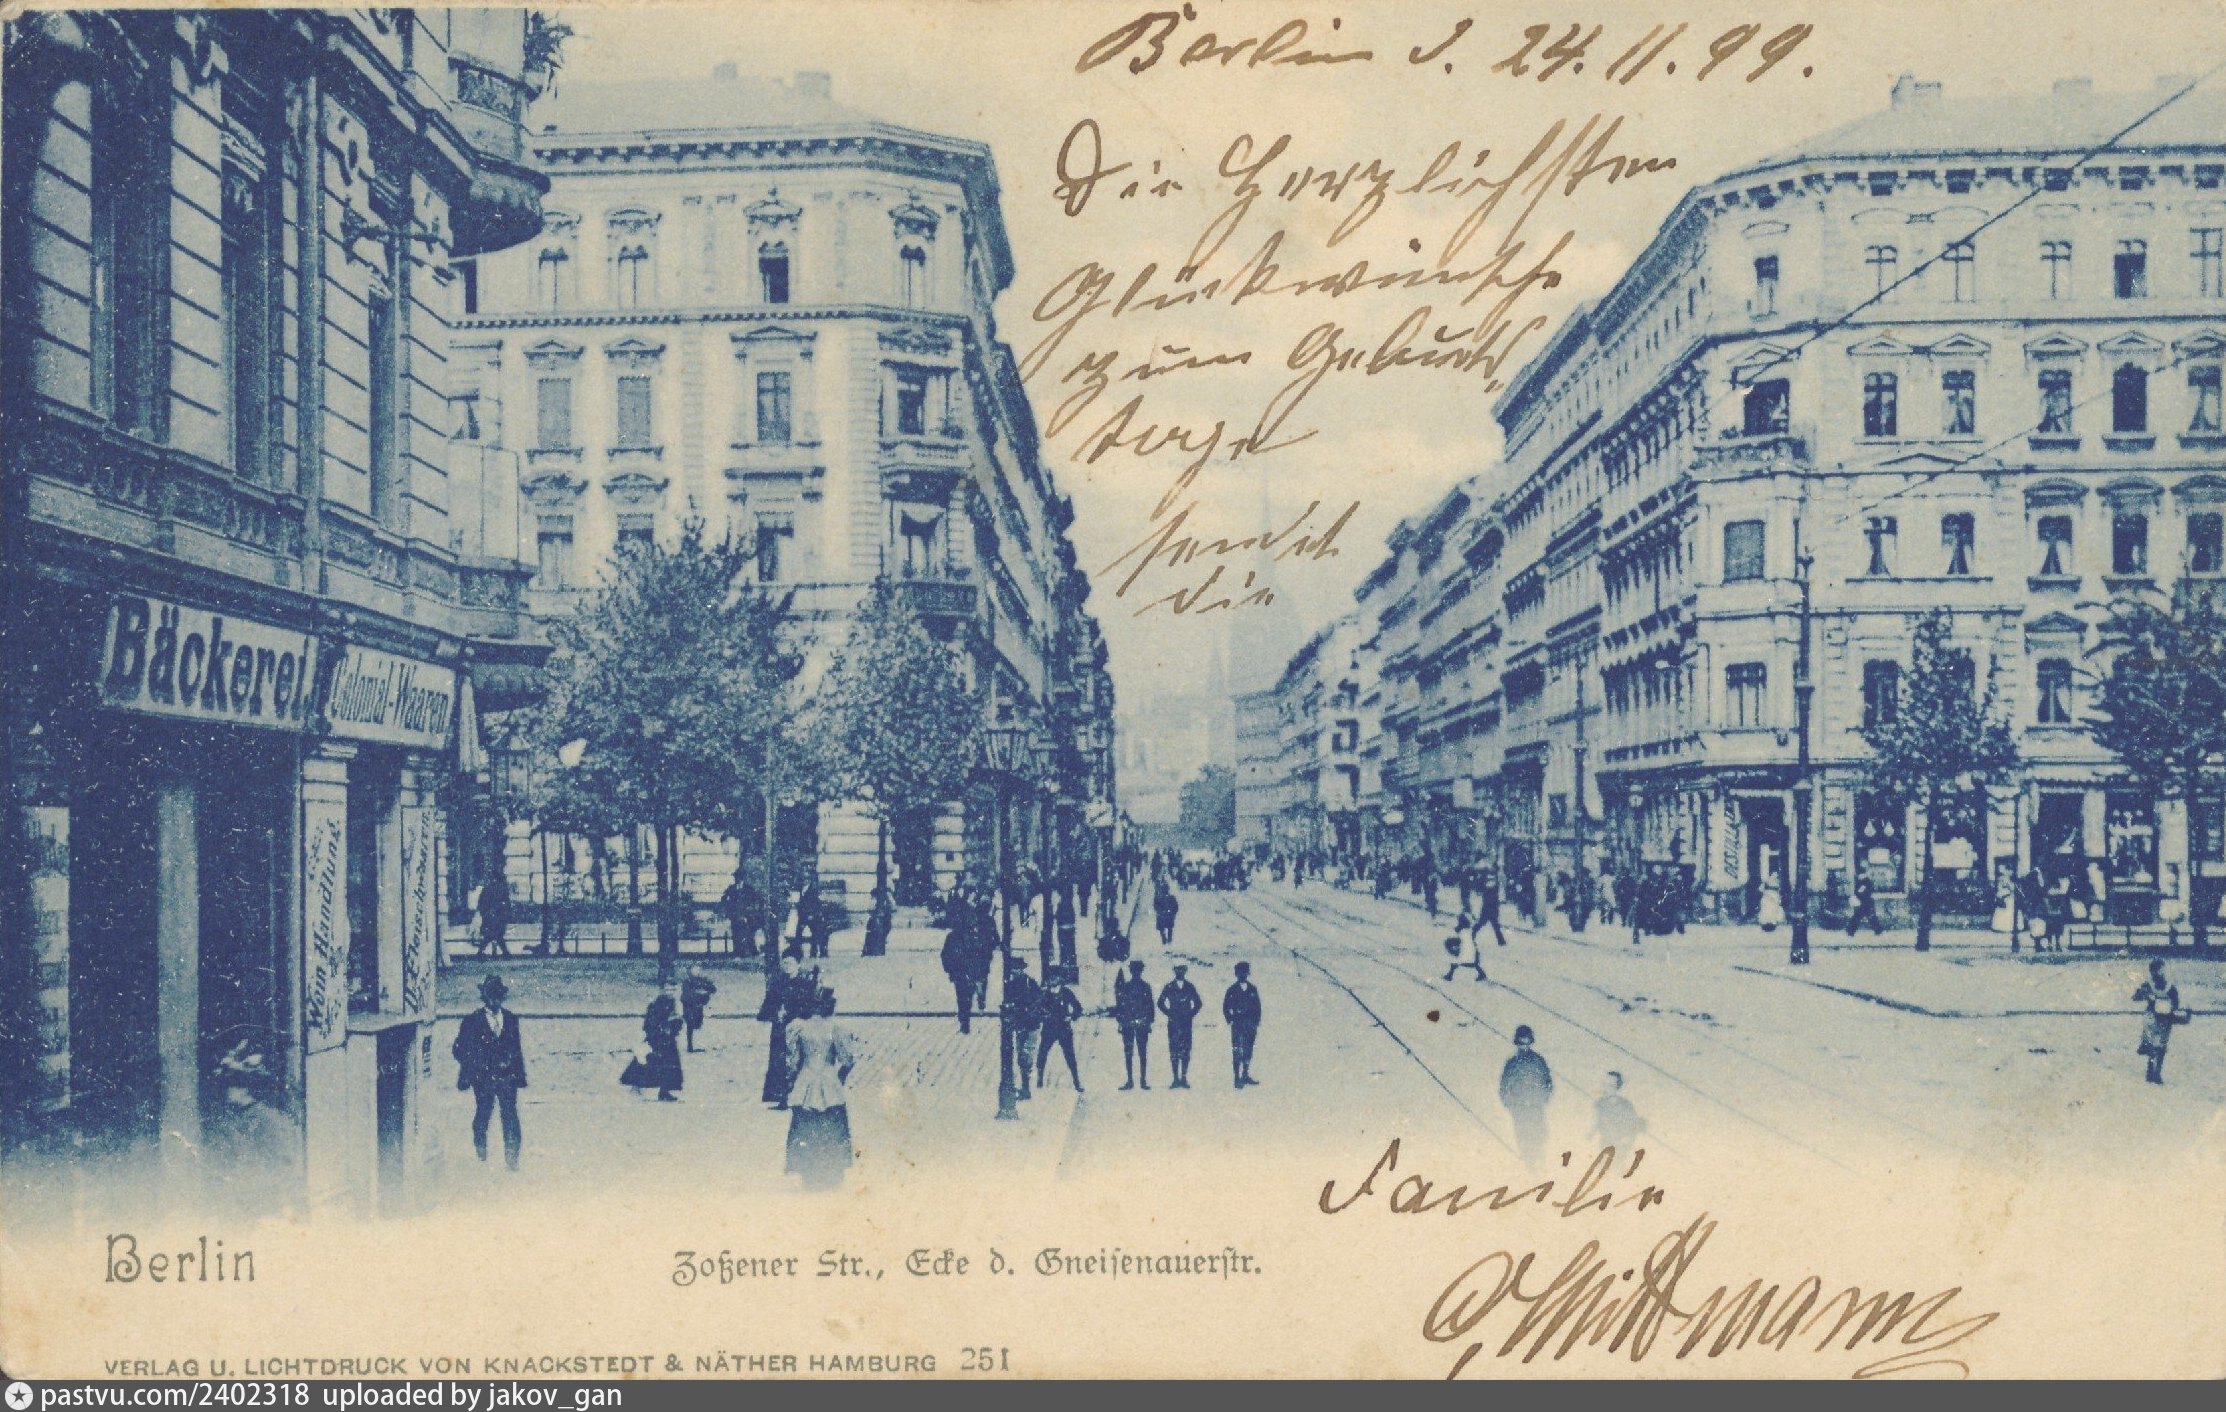 Berlin d. 24.11.99.
Die Herzlichsten
Glückwünsche
zum Geburts
tage
sendet
die
Bäckerei.
Colonial-Waaren
Wein Handlung
Familie
Berlin
Zoßener Str., Ecke d. Gneisenauerstr.
VERLAG U. LICHTDRUCK VON KNACKSTEDT & NÄTHER HAMBURG 251
pastvu.com/2402318 uploaded by jakov_gan